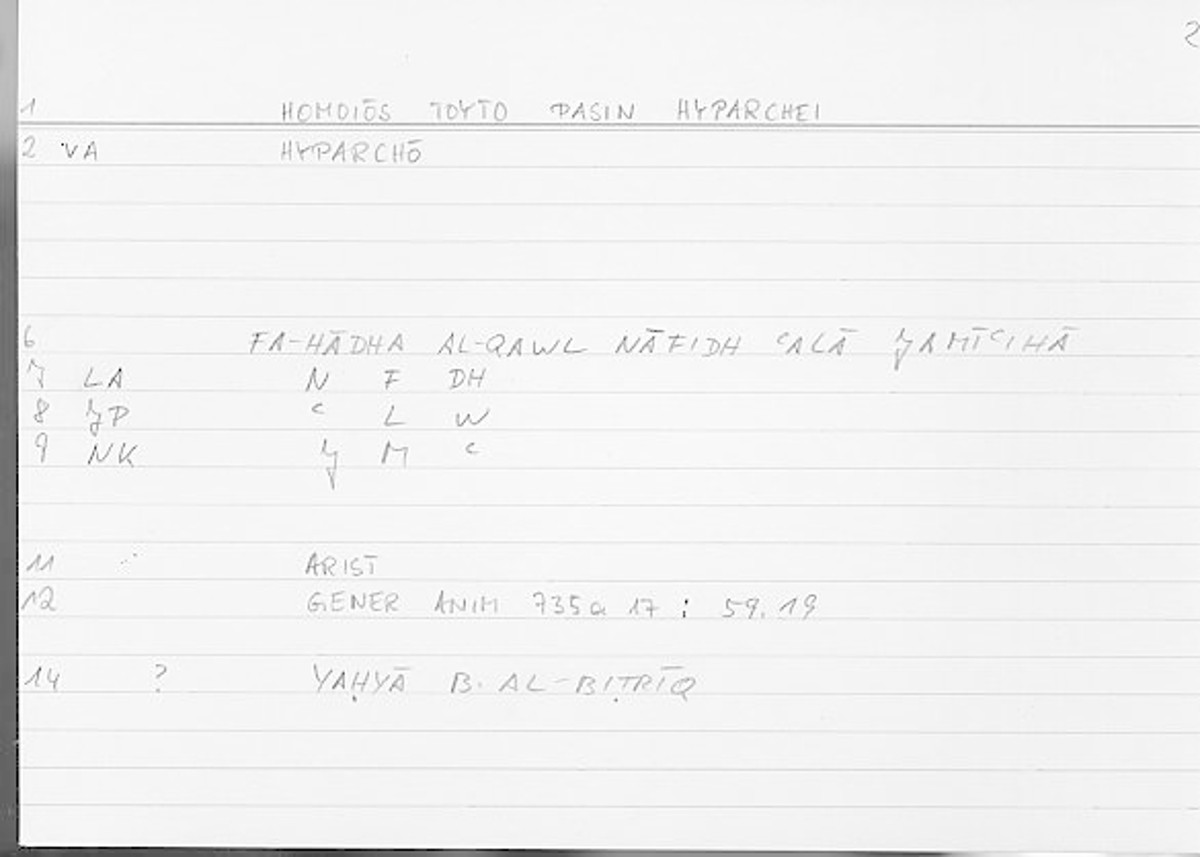 2
1 HOMOIŌS TOYTO PASIN HYPARCHEI
2 VA HYPARCHŌ
6 FA-HĀDHA AL-QAWL NĀFIDH ʿALĀ JAMĪʿIHĀ
7 LA N F DH
8 JP ʿ L W
9 NK J M ʿ
11 ARIST
12 GENER ANIM 735a 17 : 59.19
14 ? YAḤYĀ B. AL-BIṬRĪQ